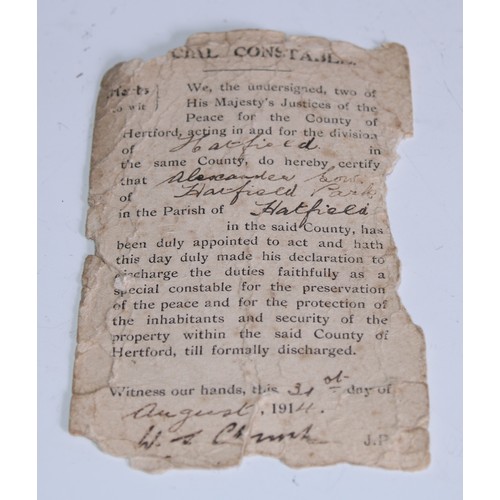 CIAL CONSTABLE
Herts
to wit
We, the undersigned, two of
His Majesty's Justices of the
Peace for the County of
Hertford, acting in and for the division
of Hatfield in
the same County, do hereby certify
that Alexander
of Hatfield Park
in the Parish of Hatfield
in the said County, has
been duly appointed to act and hath
this day duly made his declaration to
discharge the duties faithfully as a
special constable for the preservation
of the peace and for the protection of
the inhabitants and security of the
property within the said County of
Hertford, till formally discharged.
Witness our hands, this 31st day of
August, 1914.
W. J.P.